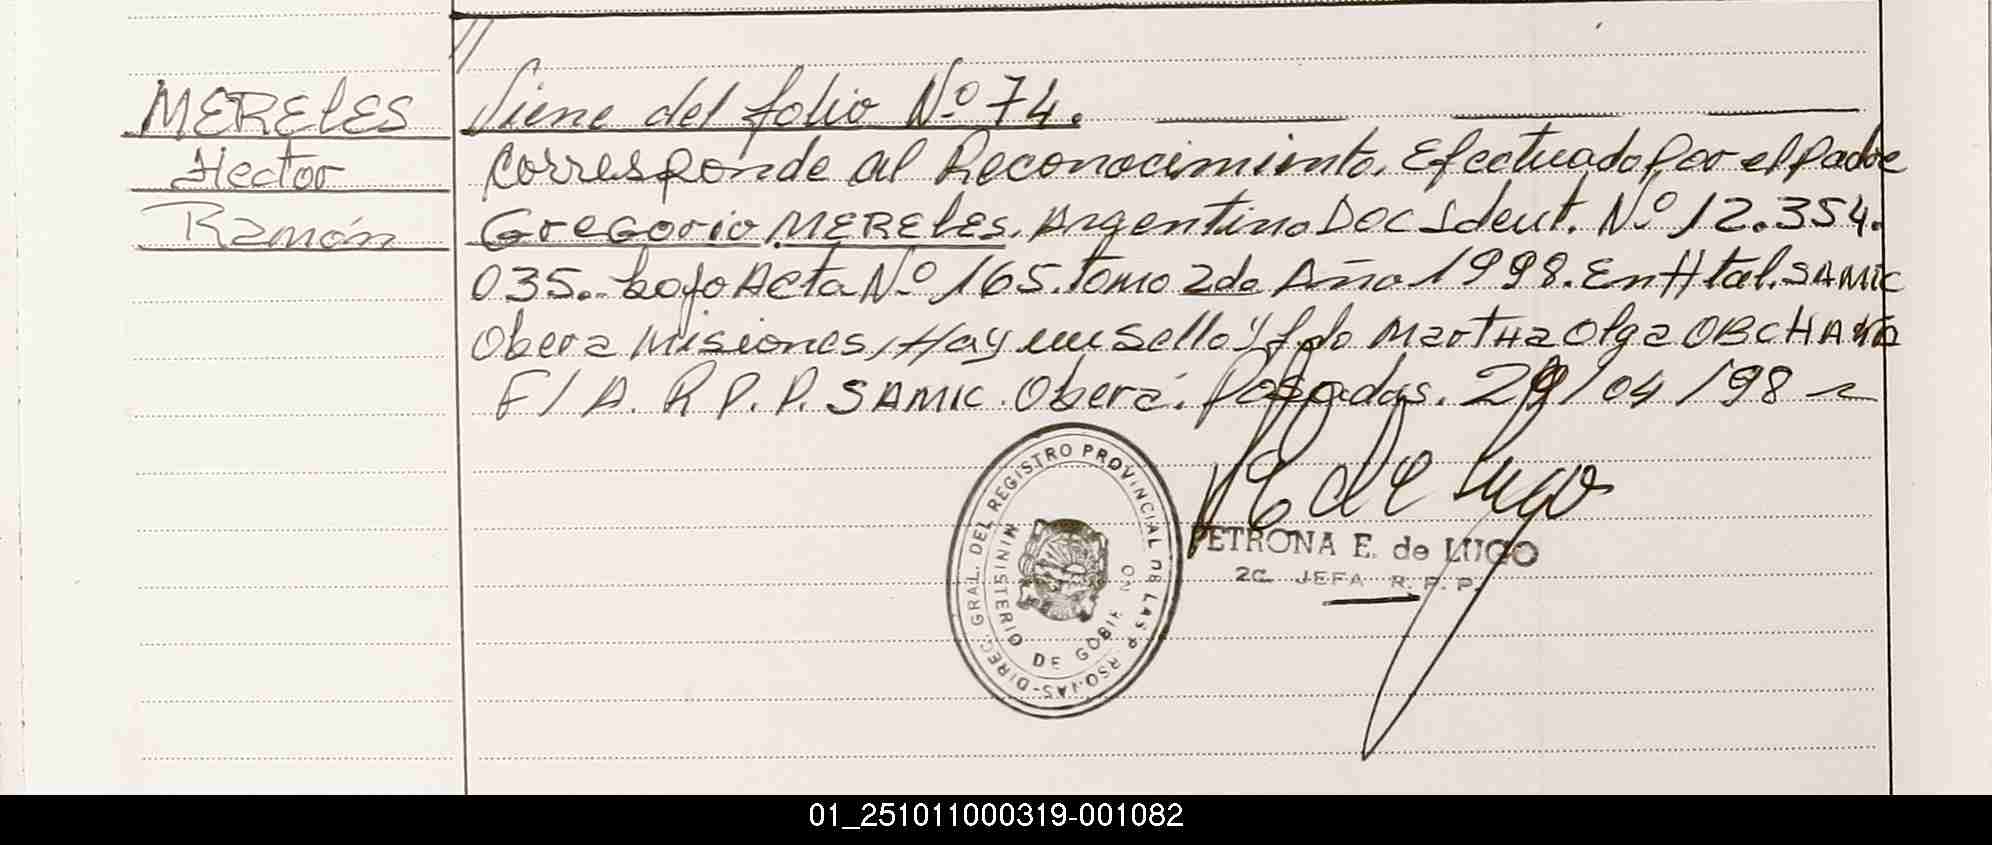 //
MERELES
Hector
Ramón
Viene del folio Nº 74.
Corresponde al Reconocimiento. Efectuado por el padre
Gregorio MERELES. Argentino Doc Ident. Nº 12.354.
035. bajo Acta Nº 165. tomo 2do Año 1998. En Htal. SAMIC
Obera Misiones, Hay un sello y fdo Martha Olga
F/A. R.P.P. SAMIC. Oberá. Posadas. 29/04/98
DIREC. GRAL. DEL REGISTRO PROVINCIAL DE LAS
MINISTERIO DE
PETRONA E. de LUGO
2C. JEFA R.P.P.
01_251011000319-001082